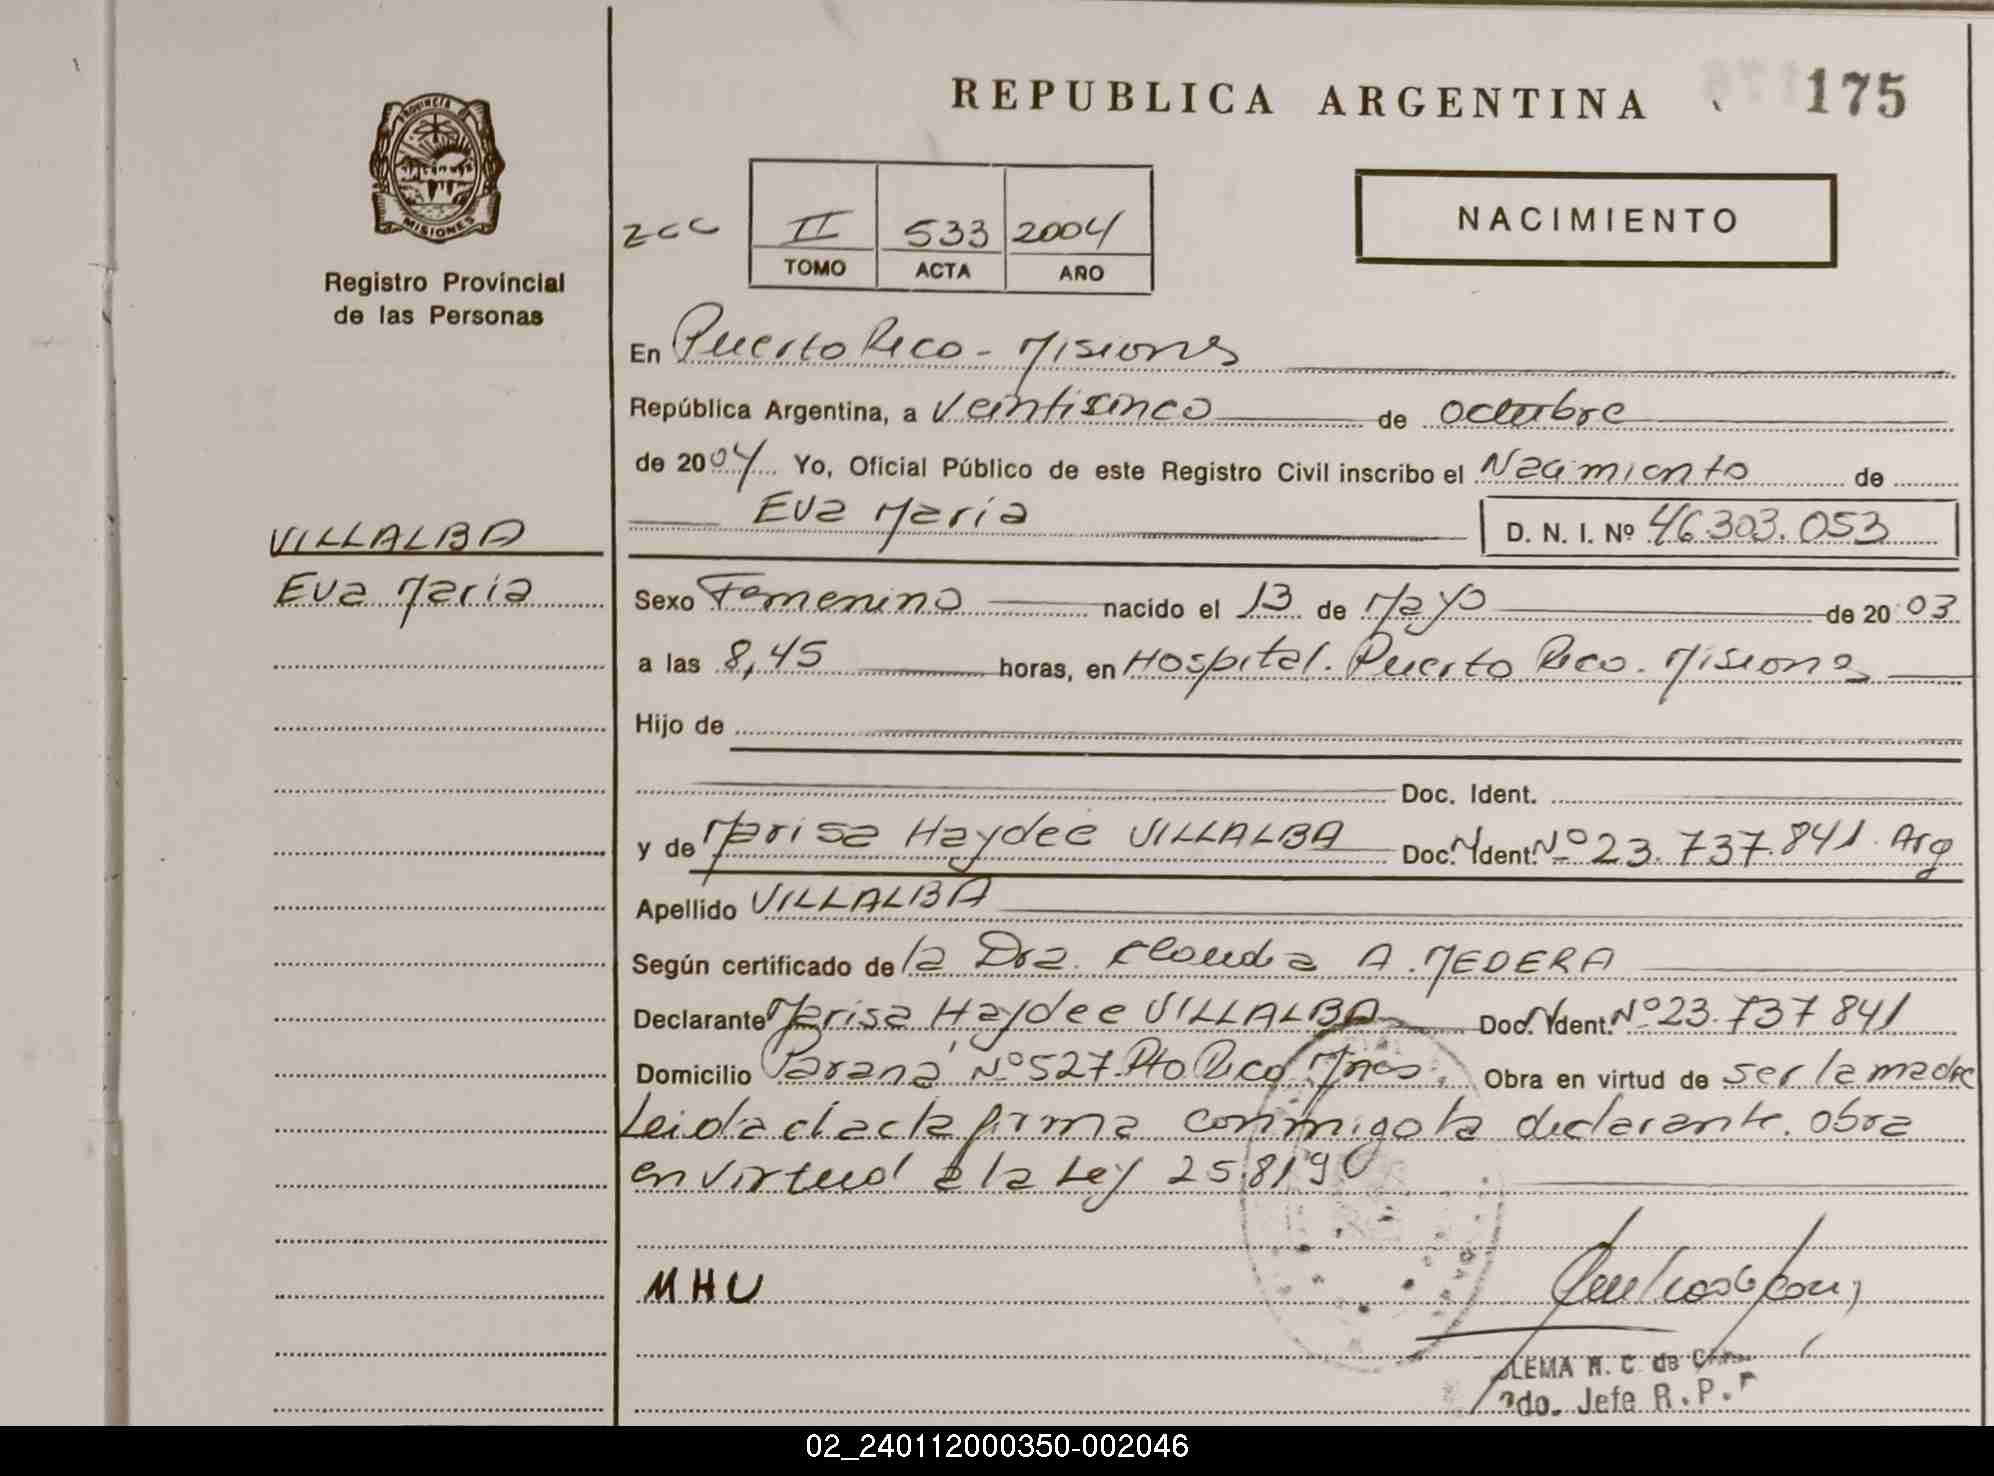 REPUBLICA ARGENTINA 175
PROVINCIA
MISIONES
Registro Provincial
de las Personas
II 533 2004
TOMO ACTA AÑO
NACIMIENTO
En Puerto Rico - Misiones
República Argentina, a Veinticinco de octubre
de 2004 Yo, Oficial Público de este Registro Civil inscribo el Nacimiento de
Eva María D. N. I. Nº 46.303.053
VILLALBA
Eva María
Sexo Femenino nacido el 13 de Mayo de 2003
a las 8,45 horas, en Hospital. Puerto Rico. Misiones
Hijo de
Doc. Ident.
y de Marisa Haydee VILLALBA Doc. Ident. Nº 23.737.841. Arg
Apellido VILLALBA
Según certificado de la Dra. Claudia A. MEDERA
Declarante Marisa Haydee VILLALBA Doc. Ident. Nº 23.737 841
Domicilio Paraná Nº 527. Pto Rico Mnes. Obra en virtud de ser la madre
Leida el acta firma conmigo la declarante. obra
en virtud a la Ley 25.819
MHU
LEMA H. C. de
do. Jefe R. P.
02_240112000350-002046